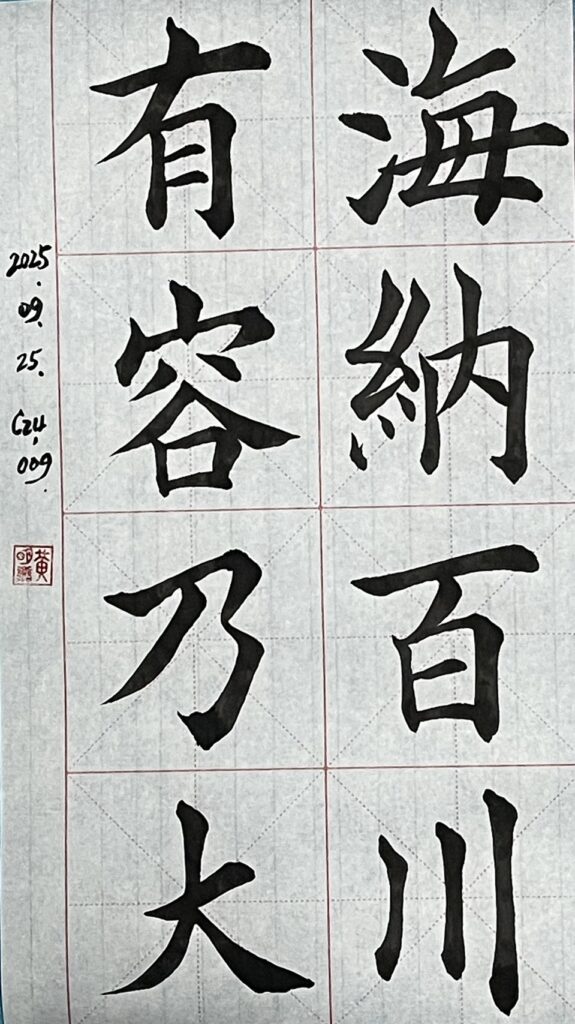 海納百川
有容乃大
2025.09.25. C24,009.